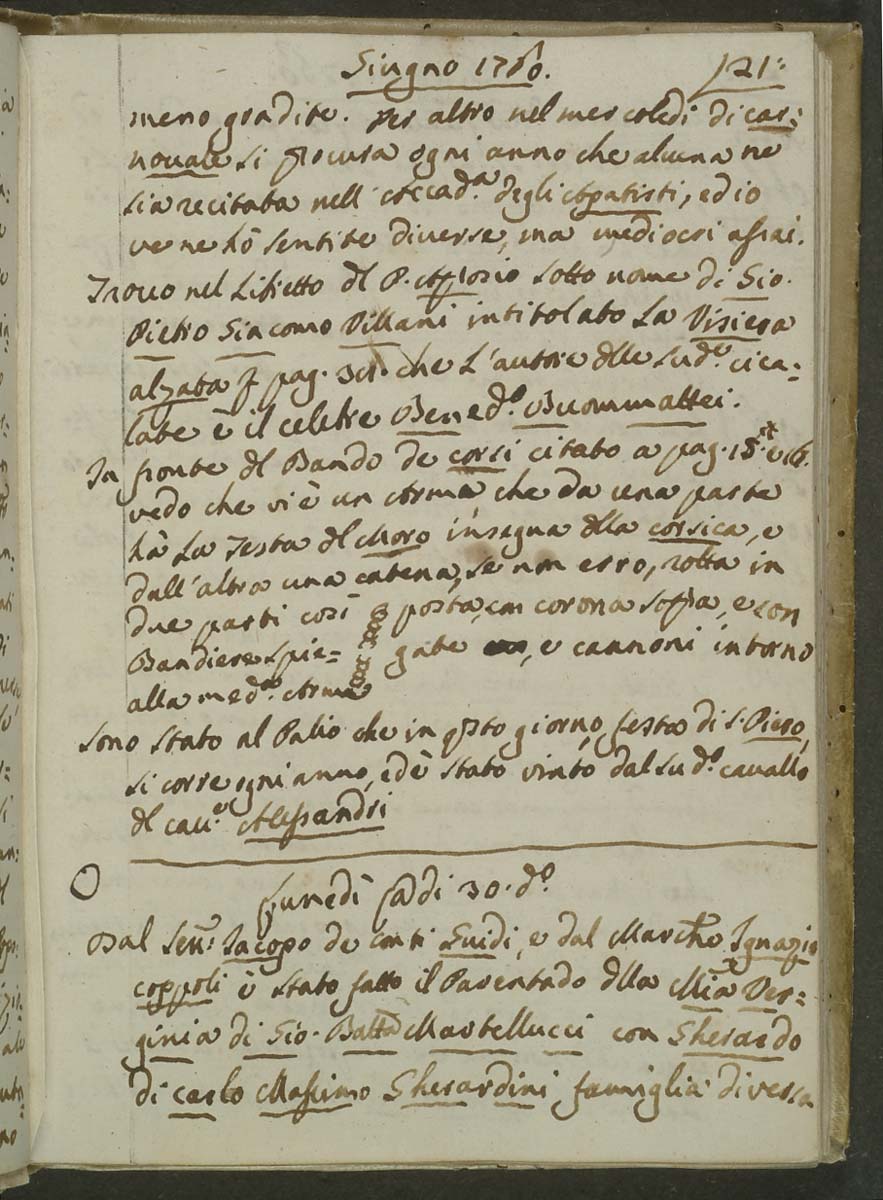 Giugno 1760. 121.
meno gradite. Per altro nel mercoledì di car:
novale si procura ogni anno che alcuna ne
sia recitata nell'Accad.ª degli Apatisti, ed io
ve ne hò sentite diverse, ma mediocri assai.
Trovo nel Libretto dl P. Aprosio sotto nome di Gio.
Pietro Giacomo Villani intitolato La Visiera
alzata p pag. 30. che L'autore dlle sud.e cica=
late è il celebre Bened.o Buommattei.
In fronte dl Bando de corsi citato a pag. 15.* e 16.
vedo che vi è un Arma che da una parte
hà La Testa dl Moro insegna dlla corsica, e
dall'altra una catena, se non erro, rotta in
due parti così posta, con corona sopra, e con
Bandiere spie= gate, e cannoni intorno
alla med.ª Arma
Sono stato al Palio che in qsto giorno, festa di S. Piero,
si corre ogni anno, ed è stato vinto dal sud.o cavallo
dl cav.e Alessandri
Lunedì Adi 30. d.o
Dal Sen.re Iacopo de conti Guidi, e dal March.e Ignazio
coppoli è stato fatto il Parentado dlla Mia Ver=
ginia di Gio. Batta Martellucci con Gherardo
di carlo Massimo Gherardini famiglia diversa